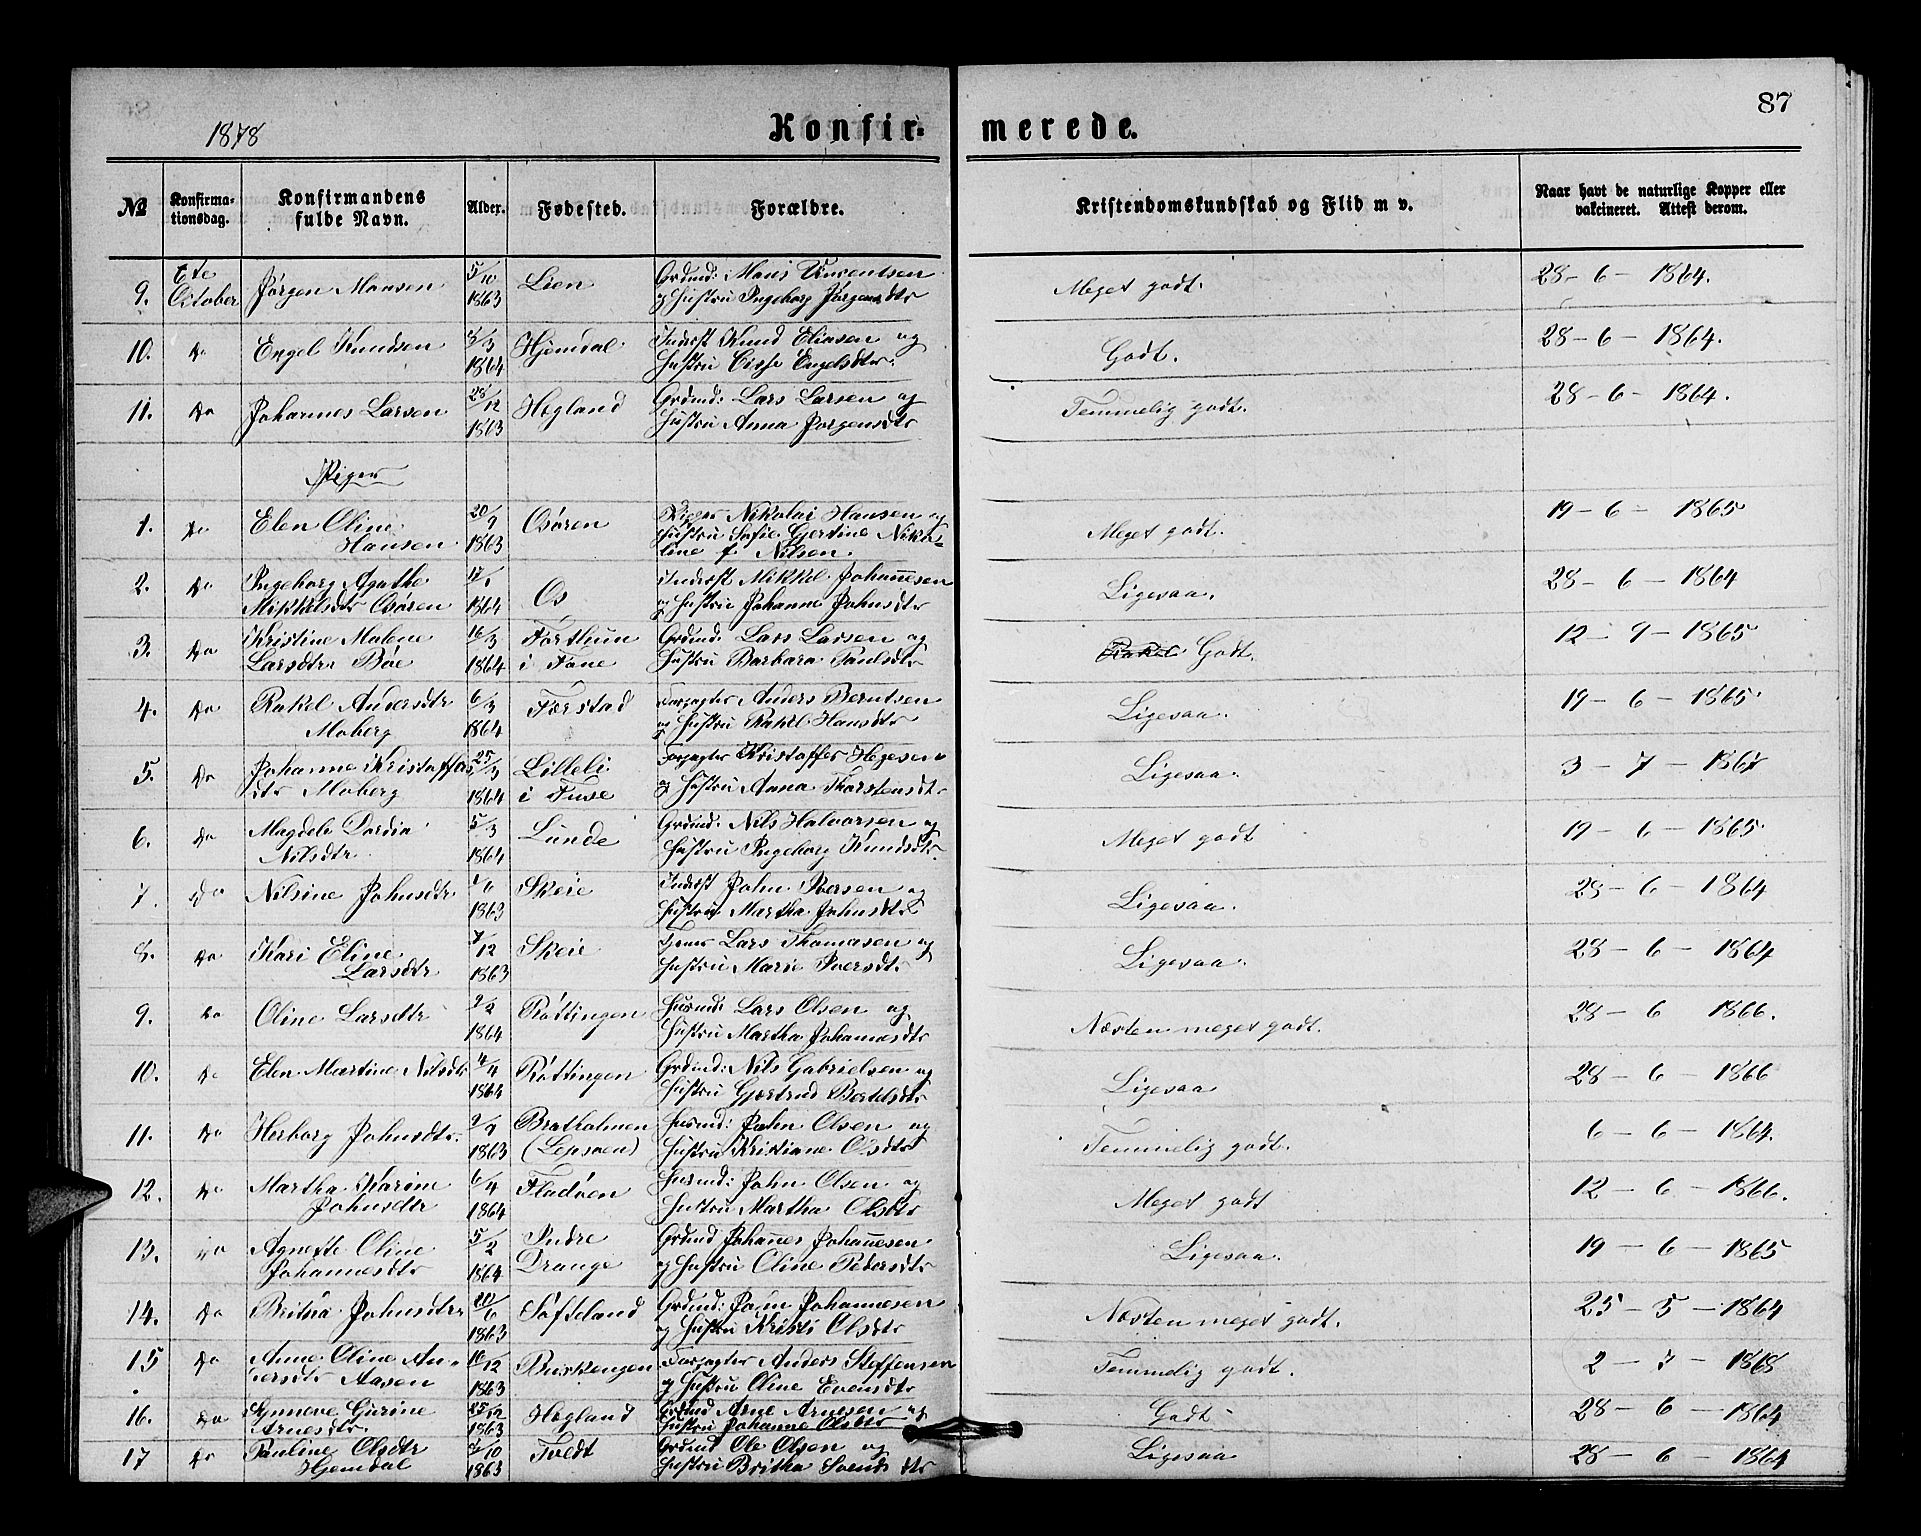 87
1878
Konfir= merede.
No Konfirma= tionsdag. Konfirmandens fulde Navn. Alder. Fødested. Forældre. Kristendomskundskab og Flid m v. Naar havt de naturlige Kopper eller vakcineret. Attest derom.
9. 6te October Jørgen Monsen 5/10 1863 Lien Grdmd: Mons Vincentsen og Hustru Ingeborg Jørgensdtr Meget godt. 28 - 6 - 1864.
10. Do Engel Knudsen 3/3 1864 Hjemdal Inderst Knud Eliasen og Hustru Cisse Engelsdtr. Godt. 28 - 6 - 1864.
11. Do Johannes Larsen 28/12 1863 Hegland Grdmd: Lars Larsen og Hustru Anna Jørgensdtr Temmelig godt. 28 - 6 - 1864.
Piger
1. Do Elen Oline Hansen 20/9 1863 Osøren Nikolai Hansen og Hustru Sofie Gjertine Niko= line f. Nilsen. Meget godt. 19 - 6 - 1865
2. Do Ingeborg Agathe Mikkelsdtr Osøren 17/1 1864 Os Inderst Mikkel Johannesen og Hustru Johanne Johnsdtr Ligesaa. 28 - 6 - 1864
3. Do Kristine Malene Larsdtr Bøe 16/3 1864 Førthun i Fane Grdmd: Lars Larsen og Hustru Barbara Paulsdtr Rakel Godt. 12 - 9 - 1865
4. Do Rakel Andersdtr Moberg 6/3 1864 Førstad Forpagter Anders Berntsen og Hustru Rakel Hansdtr Ligesaa. 19 - 6 - 1865
5. Do Johanne Kristoffers dtr Moberg 25/3 1864 Lilleli i Fuse Forpagter Kristoffer Hegesen og Hustru Anna Thorstensdtr Ligesaa. 3 - 7 - 1867
6. Do Magdeli Dordia Nilsdtr. 5/3 1864 Lunde Grdmd: Nils Halvorsen og Hustru Ingeborg Knudsdtr. Meget godt 19 - 6 - 1865
7. Do Nilsine Johnsdtr 1863 Skeie Inderst John Iversen og Hustru Martha Johnsdtr Ligesaa. 28 - 6 - 1864
8. Do Kari Eline Larsdtr 7/12 1863 Skeie Lars Thomasen og Hustru Mari Iversdtr Ligesaa. 28 - 6 - 1864
9. Do Oline Larsdtr 2/2 1864 Røttingen Husmd: Lars Olsen og Hustru Martha Johannesdtr Næsten meget godt. 28 - 6 1866.
10. Do Elen Martine Nilsdtr 4/4 1864 Røttingen Grdmd: Nils Gabrielsen og Hustru Gjertrud Bertelsdtr Ligesaa 28 - 6 - 1866
11. Do Herborg Johnsdtr. 2/9 1863 Bratholmen (Lepsøen) Husmd: John Olsen og Hustru Kristiane Olsdtr Temmelig godt. 6 - 6 - 1864.
12. Do Martha Karine Johnsdtr 6/4 1864 Fladøen Husmd: John Olsen og Hustru Martha Olsdtr Meget godt 12 - 6 - 1866.
13. Do Agnethe Oline Johannesdtr 5/2 1864 Indre Drange Grdmd Johannes Johannesen og Hustru Oline Pedersdtr Ligesaa. 19 - 6 - 1865
14. Do Britha Johnsdtr 20/6 1863 Søfteland Grdmd: John Johannesen og Hustru Kristi Olsdtr Næsten meget godt. 25 - 5 - 1864
15 Do Anne Oline An= dersdtr Aasen 10/12 1863 Buskengen Forpagter Anders Steffensen og Hustru Oline Evensdtr Temmelig godt. 2 - 7 - 1868
16. Do Synneve Gurine Arnesdtr. 25/12 1863 Hegland Grdmd Arne Arnesen og Hustru Johanne Olsdtr Godt 28 - 6 - 1864
17 Do Pauline Olsdtr Hjemdal /10 1863 Tvedt Grdmd Ole Olsen og Hustru Britha Svendsdtr Ligesaa 28 - 6 - 1864